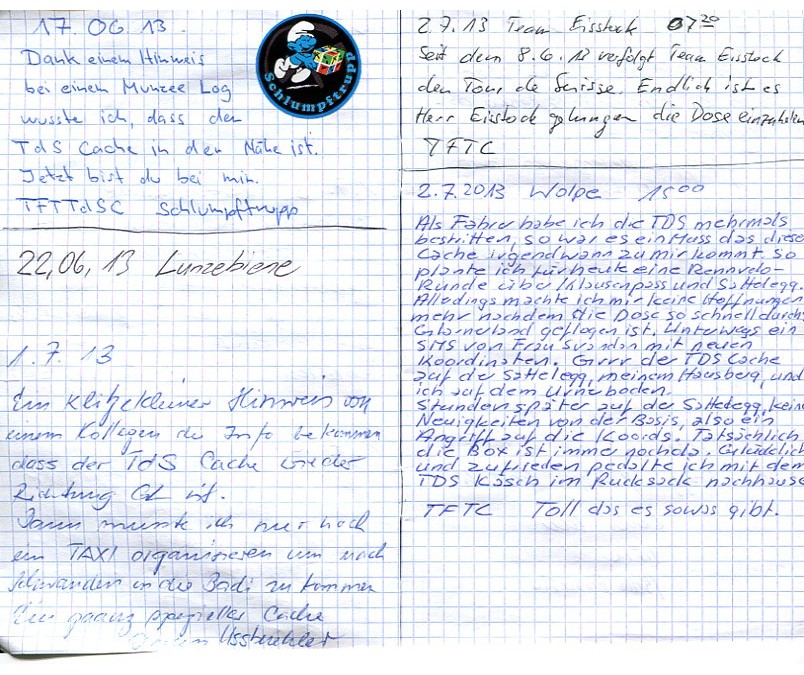 17. 06. 13.
Dank einem Hinweis
bei einem Munzee Log
wusste ich, dass der
TdS Cache in der Nähe ist.
Jetzt bist du bei mir.
TFTTdSC Schlumpftrupp
Schlumpftrupp
22,06, 13 Lunzebiene
1. 7. 13
Ein klitzekleiner Hinweis von
einem Kollegen die Info bekommen
dass der TdS Cache wieder
Richtung GL ist.
Dann musste ich nur noch
ein TAXI organisieren um nach
Schwanden in die Badi zu kommen
Ein gaanz spezieller Cache
2.7.13 Team Eisstock 07 20
Seit dem 8.6.13 verfolgt Team Eisstock
den Tour de Suisse. Endlich ist es
Herr Eisstock gelungen die Dose einzuholen
TFTC
2.7.2013 Wolpe 1500
Als Fahrer habe ich die TDS mehrmals
bestritten, so war es ein Muss das diese
Cache irgendwann zu mir kommt. So
plante ich für heute eine Rennvelo-
Runde über Klausenpass und Sattelegg.
Alledings machte ich mir keine Hoffnungen
mehr nachdem die Dose so schnell durchs
Glarnerland geflogen ist. Unterwegs ein
SMS von Frau mit neuen
Koordinaten. Grrr der TDS Cache
auf der Sattelegg, meinem Hausberg, und
ich auf dem Urnerboden.
Stunden später auf der Sattelegg, keine
Neuigkeiten von der Basis, also ein
Angriff auf die Koords. Tatsächlich
die Box ist immer noch da. Glücklich
und zufrieden pedalte ich mit dem
TDS Käsch im Rucksack nachhause
TFTC Toll das es sowas gibt.